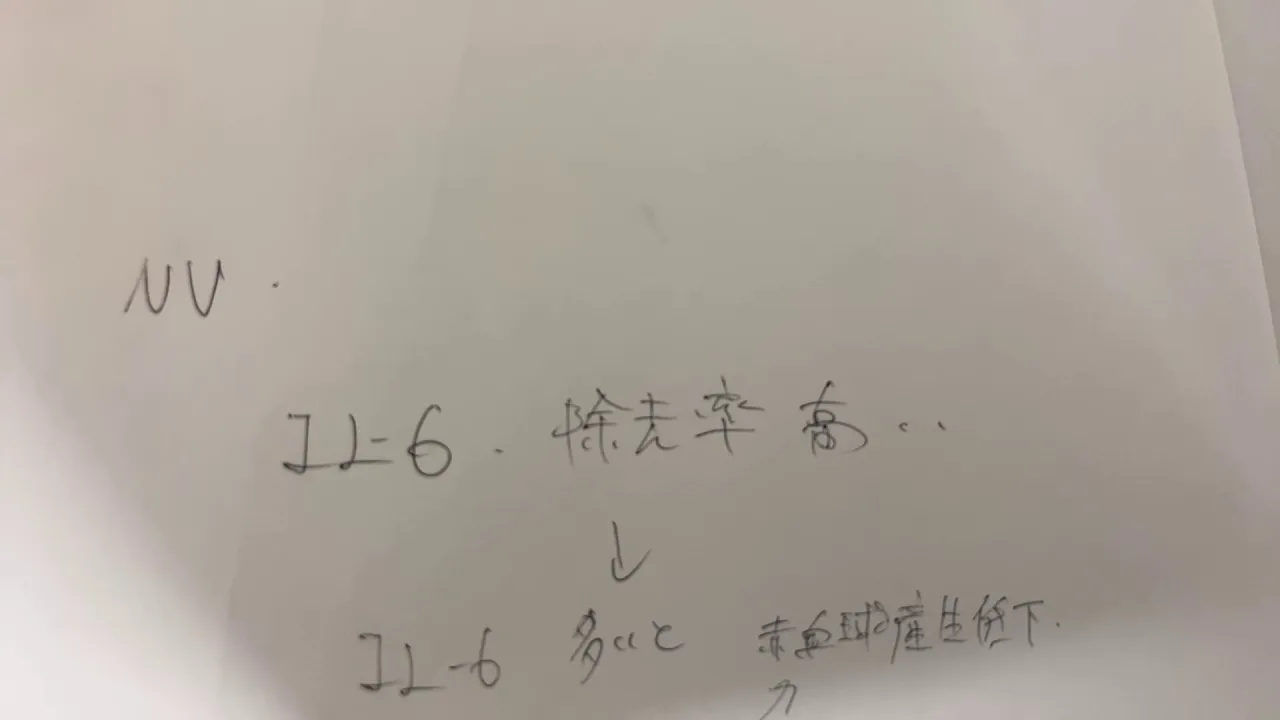 NV.
IL-6. 除去率 高い.
↓
IL-6 多いと 赤血球産生低下.